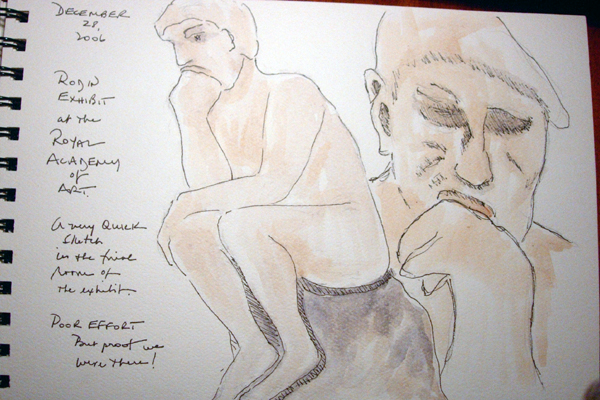 DECEMBER
28,
2006
RODIN
EXHIBIT
at the
ROYAL
ACADEMY
of
ART.
A very Quick
Sketch
in the final
room of
the exhibit.
POOR EFFORT
But proof we
were there!